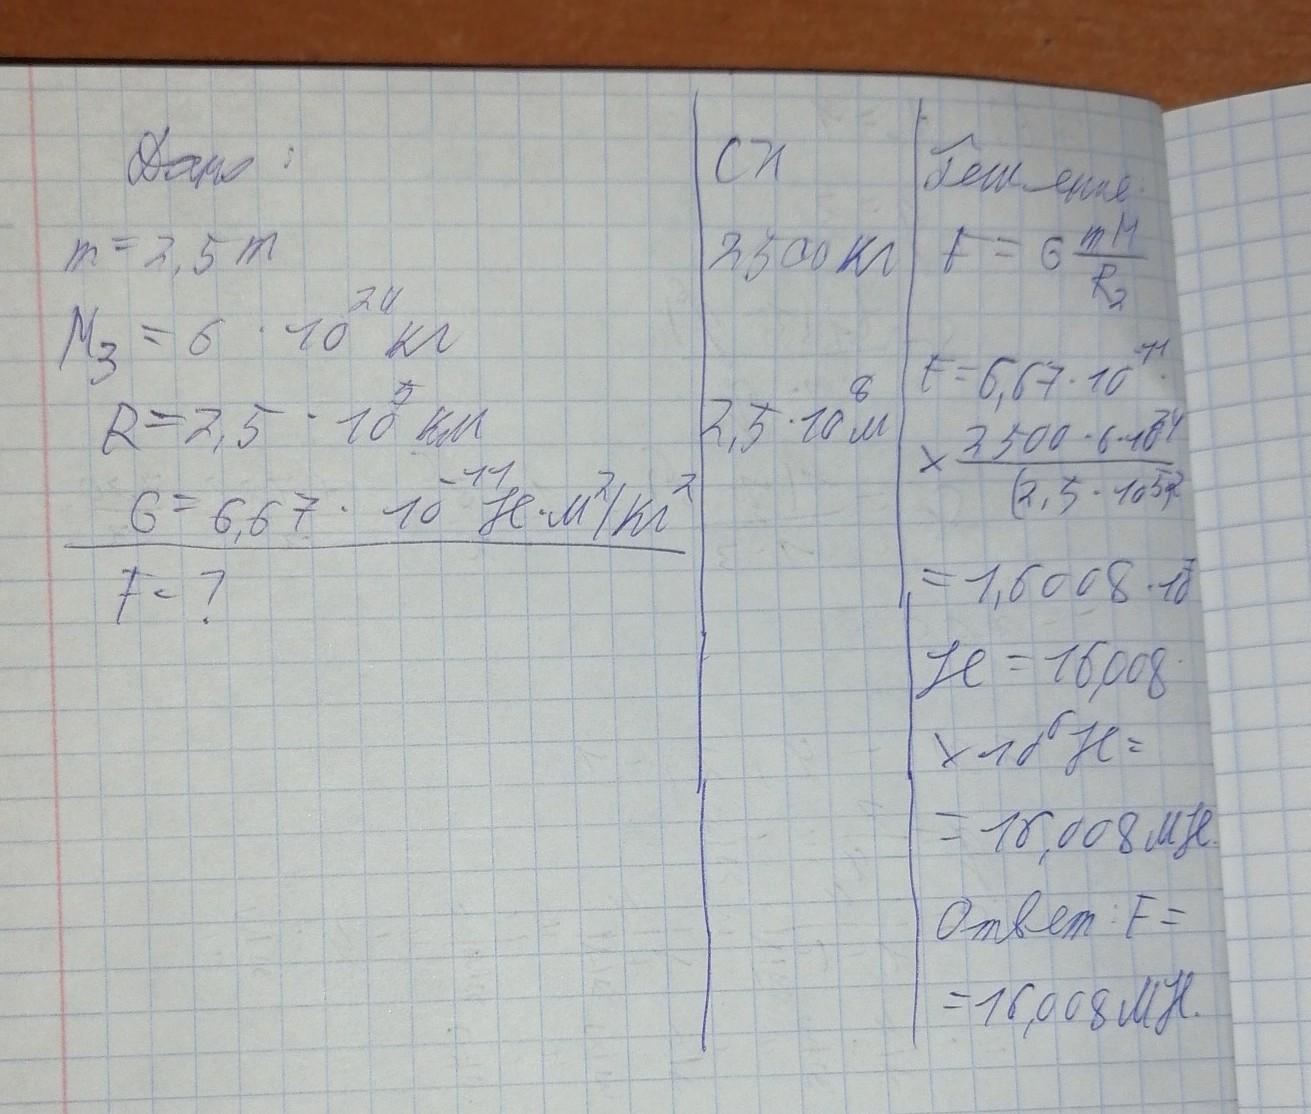 Дано:
m = 2,5 т
M₃ = 6 · 10²⁴ кг
R = 2,5 · 10⁵ км
G = 6,67 · 10⁻¹¹ Н·м²/кг²
F - ?
СИ
2500 кг
2,5 · 10⁸ м
Решение:
F = G mM/R₂
F = 6,67 · 10⁻¹¹ ·
× 2500 · 6 · 10²⁴/(2,5 · 10⁵)²
= 1,6008 · 10⁷
Н = 16,008 ·
× 10⁶ Н =
= 16,008 МН.
Ответ: F =
= 16,008 МН.